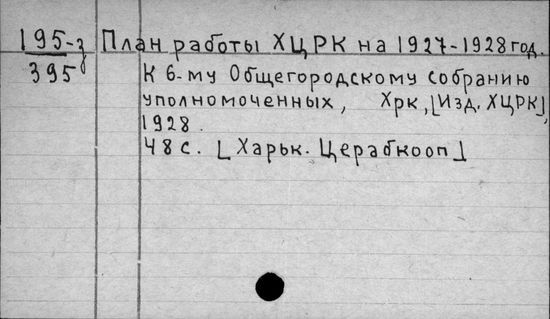 195-з План работы ХЦРК на 1927-1928 год.
395 К 6-му Общегородскому собранию
уполномоченных, Хрк, [Изд. ХЦРК],
1928.
48 с. [Харьк. Церабкооп]